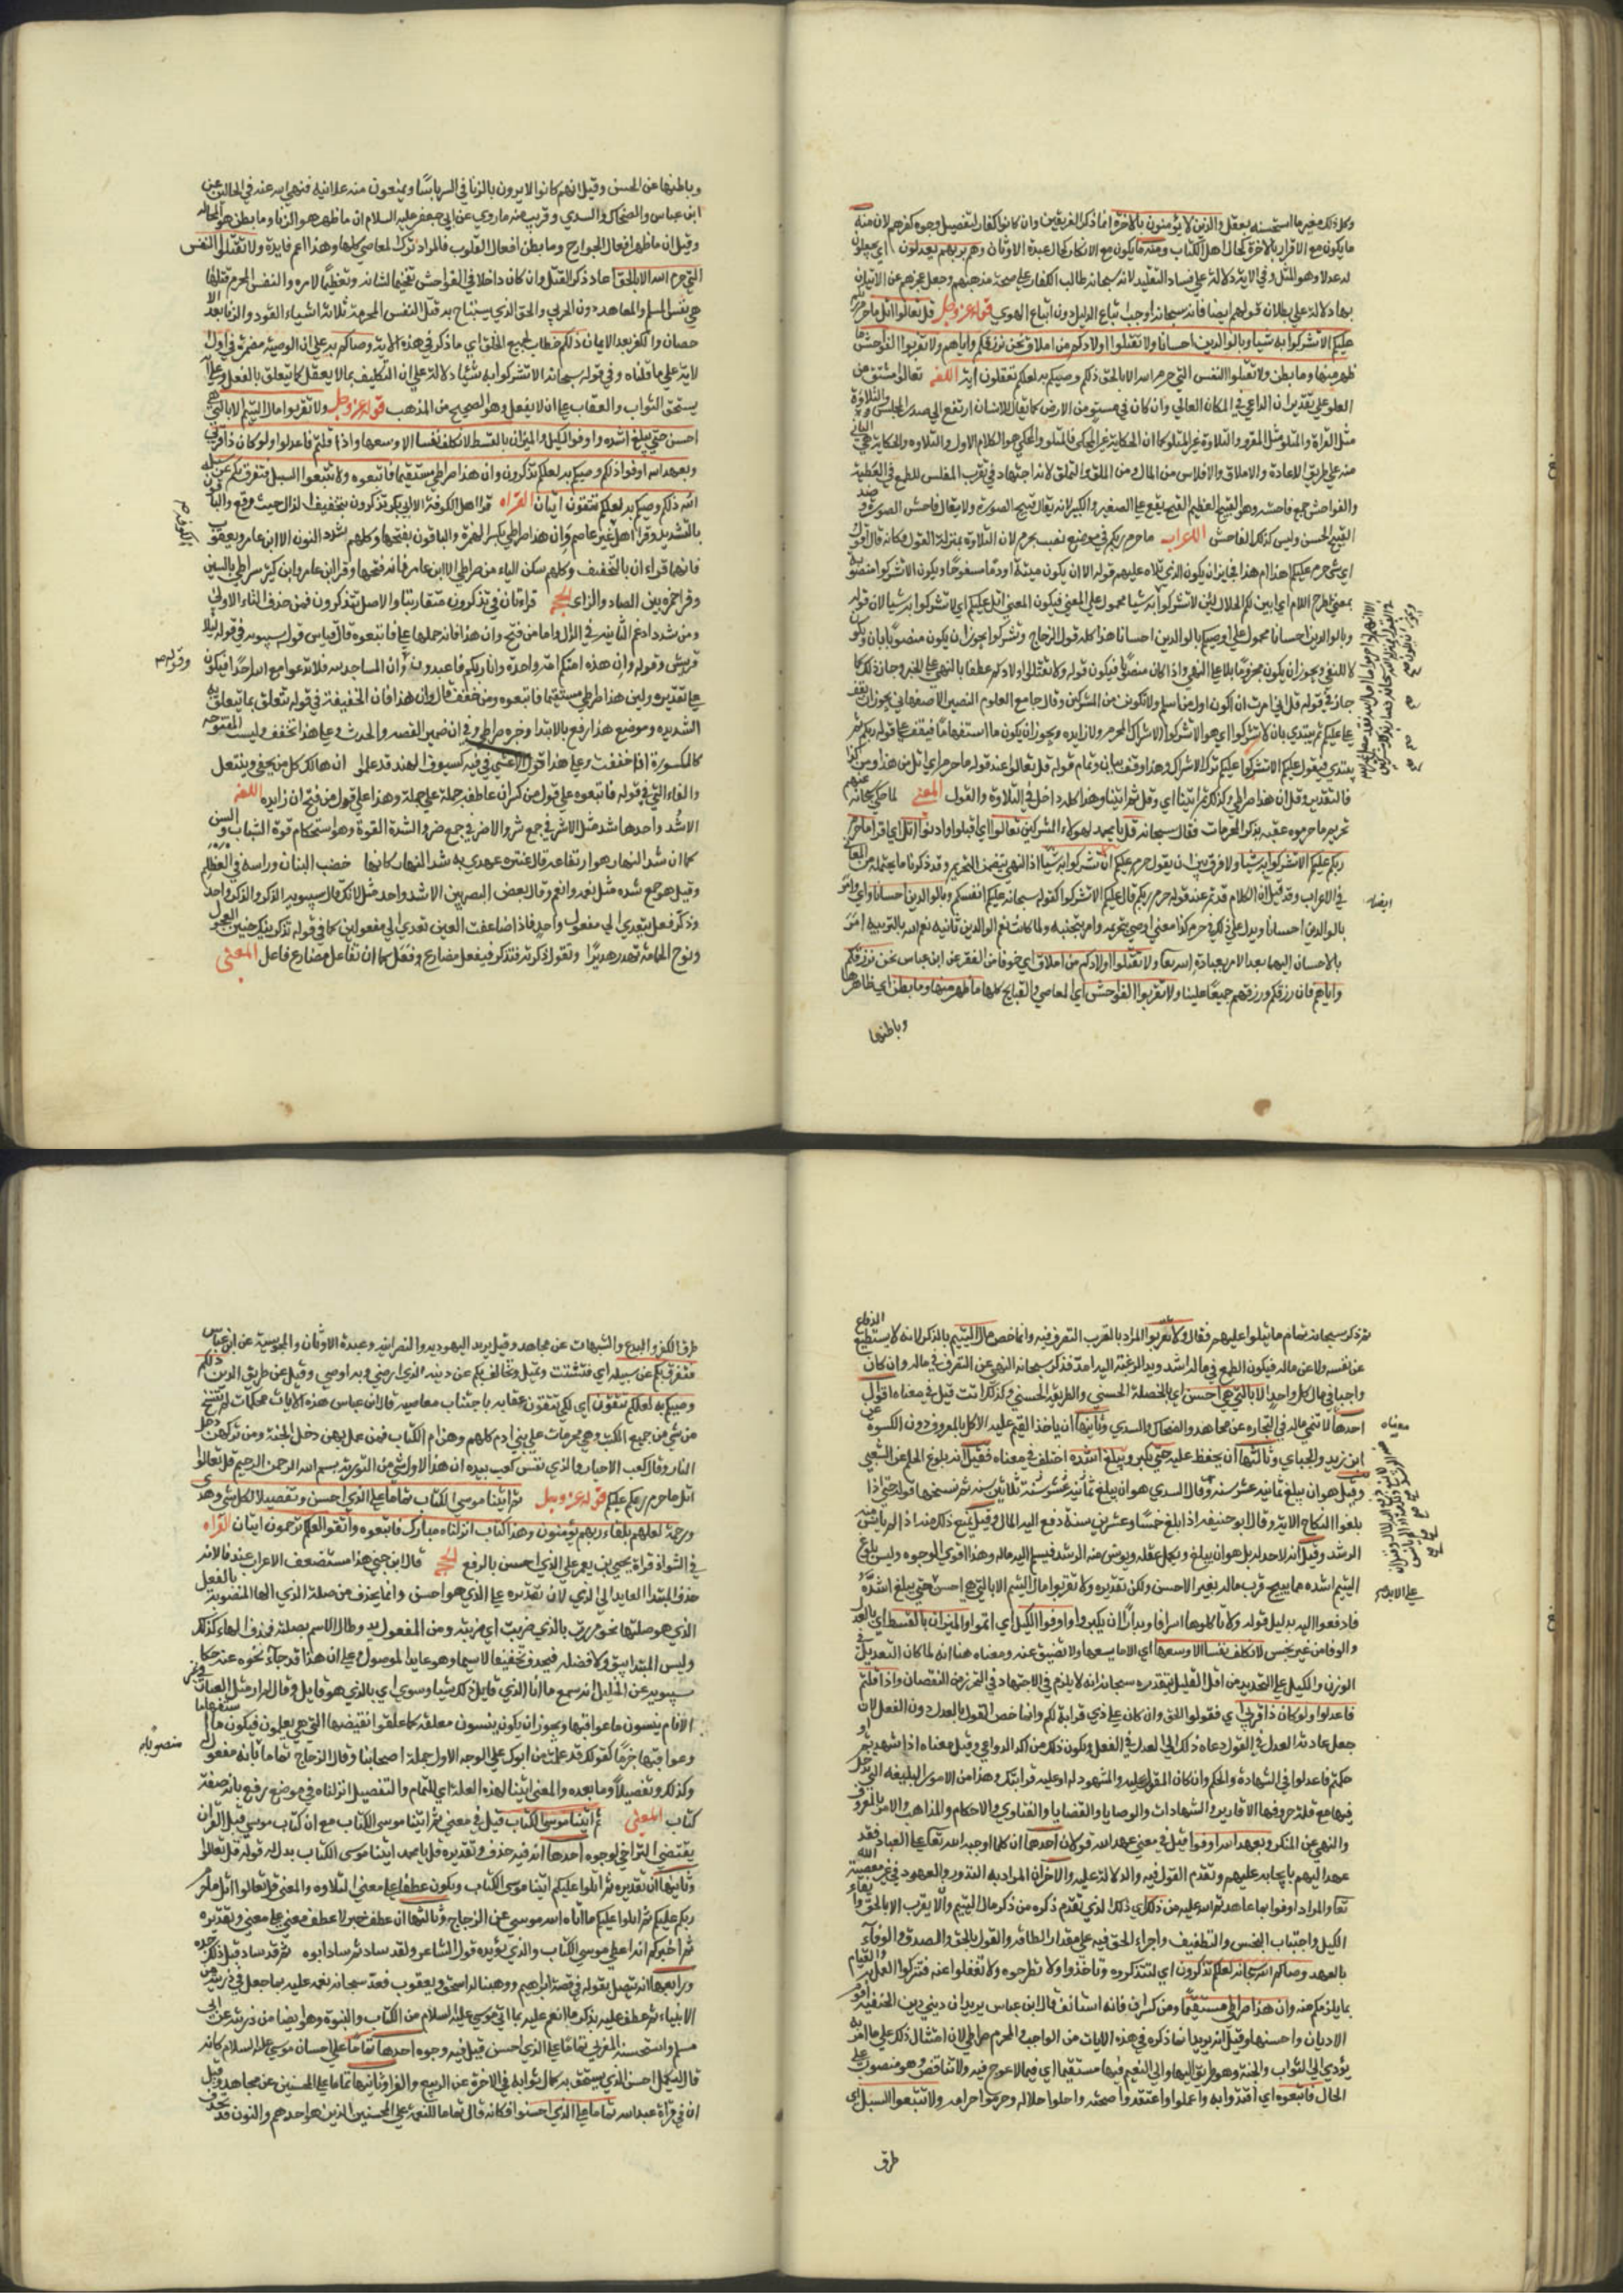 وكل ذلك بغير ما استحسنه بعقل والذين لا يؤمنون بالاخرة انما ذكر الفريقين وان كانوا كفارا لتفصيل وجوه كفرهم لان منه
ما يكون مع الاقرار بالاخرة كحال اهل الكتاب ومنه ما يكون مع الانكار كحال عبدة الاوثان وهم بربهم يعدلون اي يجعلون
له عدلا وهو المثل وفي الاية دلالة علي فساد التقليد لانه سبحانه طالب الكفار علي صحة مذهبهم وجعل عجزهم عن الاتيان
بها دلالة علي بطلان قولهم ايضا فانه سبحانه اوجب اتباع الدليل دون اتباع الهوي قوله عز وجل قل تعالوا اتل ما حرم ربكم
عليكم الا تشركوا به شيا وبالوالدين احسانا ولا تقتلوا اولادكم من املاق نحن نرزقكم واياهم ولا تقربوا الفواحش ما
ظهر منها وما بطن ولا تقتلوا النفس التي حرم الله الا بالحق ذلكم وصيكم به لعلكم تعقلون اية اللغه تعالوا مشتق من
العلو علي تقدير ان الداعي في المكان العالي وان كان في مستو من الارض كما يقال للانسان ارتفع الي صدر المجلس والتلاوة
مثل القراة والمتلو مثل المقرو والتلاوة غير المتلو كما ان الحكاية غير المحكي فالمتلو والمحكي هو الكلام الاول والتلاوه والحكاية هي الثاني
منه علي طريق الاعادة والاملاق والافلاس من المال ومن الملق والتملق لانه اجتهاد في تقرب المفلس للطمع في العطية
والفواحش جمع فاحشه وهو القبيح العظيم القبح والقبيح يقع علي الصغير والكبير لانه يقال قبيح الصورة ولا يقال فاحش الصورة وضد
القبيح الحسن وليس كذلك الفاحش الاعراب ما حرم ربكم في موضع نصب بحرم لان التلاوة بمنزلة القول فكانه قال اقول
اي شي حرم عليكم اهذا ام هذا فجايز ان يكون الذي تلاه عليهم قوله الا ان يكون ميتة او دما مسفوحا ويكون الا تشركوا منصوبة
بمعني طرح اللام اي ابين لكم الحلال لين لا تشركوا به شيا محمول علي المعني فيكون المعني اتل عليكم اي لا تشركوا به شيا لان قوله
وبالوالدين احسانا محمول علي اوصيكم بالوالدين احسانا هذا كله قول الزجاج وتشركوا يجوز ان يكون منصوبا بان ويكون
لا للنفي ويجوز ان يكون مجزوما بلا علي النهي واذا كان منصوبا فيكون قوله ولا تقتلوا اولادكم عطفا بالنهي علي الخبر وجاز ذلك كما
جاز في قوله قل اني امرت ان اكون اول من اسلم ولا تكونن من المشركين وقال جامع العلوم النصير الاصفهاني يجوز ان تقف
علي عليكم ثم يبتدي بان لا تشركوا اي هو الا تشركوا اي هو الاشراك المحرم ولا زايده ويجوز ان يكون ما استفهاما فيقف علي قوله ربكم ثم
يبتدي فيقول عليكم الا تشركوا اي عليكم ترك الاشراك وهذا وقف بيان وتمام قوله قل تعالوا عند قوله ما حرم اي اتل من هذا ومن كذا
فالتقدير وقل ان هذا صراطي وكذلك ثم اتينا اي وقل ثم اتينا وهذا كله داخل في التلاوة والقول المعني لما حكي سبحانه عنهم
تحريم ما حرموه عقبه بذكر المحرمات فقال سبحانه قل يا محمد لهولاء المشركين تعالوا اي اقبلوا وادنوا اتل اي اقرا ما حرم
ربكم عليكم الا تشركوا به شيا ولا فرق بين ان يقول حرم عليكم ان تشركوا به شيا اذ النهي يتضمن التحريم وقد ذكرنا ما يحتمله من المعاني
في الاعراب وقد قيل ان الكلام قد تم عند قوله حرم ربكم ثم قال عليكم الا تشركوا كقوله سبحانه عليكم انفسكم وبالوالدين احسانا اي وامر
بالوالدين احسانا ويدل علي ذلك ان حرم كذا معني اوصي بتحريمه وامر بتجنبه ولما كانت نعم الوالدين تانيه نعم الله بالتربية امر
بالاحسان اليهما بعد الامر بعبادة الله ربها ولا تقتلوا اولادكم من املاق اي خوفا من الفقر عن ابن عباس نحن نرزقكم
واياهم فان رزقكم ورزقهم جميعا علينا ولا تقربوا الفواحش اي المعاصي والقبايح كلها ما ظهر منها وما بطن اي ظاهرها
وباطنها
ايضا
وباطنها عن الحسن وقيل انهم كانوا لا يرون بالزنا في السر باسا ويمنعون منه علانية فنهي الله عنه في الحالتين عن
ابن عباس والضحاك والسدي وقريب منه ما روي عن ابي جعفر عليه السلام ان ما ظهر هو الزنا وما بطن هو المخاله
وقيل ان ما ظهر افعال الجوارح وما بطن افعال القلوب فالمراد ترك المعاصي كلها وهذا اعم فايدة ولا تقتلوا النفس
التي حرم الله الا بالحق اعاد ذكر القتل وان كان داخلا في الفواحش تفخيما لشانه وتعظيما لامره والنفس المحرم قتلها
هي نفس المسلم والمعاهد دون الحربي والحق الذي يستباح به قتل النفس المحرمة ثلاثة اشياء القود والزنا بعد الا
حصان والكفر بعد الايمان ذلكم خطاب لجميع الخلق اي ما ذكر في هذه الاية وصاكم به علي ان الوصية مضمرة في اول
لاية علي ما قلناه وفي قوله سبحانه الا تشركوا به شيئا دلالة علي ان التكليف بما لا يعقل كما يتعلق بالفعل وعلي انه
يستحق الثواب والعقاب علي ان لا يفعل وهو الصحيح من المذهب قوله عز وجل ولا تقربوا مال اليتيم الا بالتي هي
احسن حتي يبلغ اشده واوفوا الكيل والميزان بالقسط لا نكلف نفسا الا وسعها واذا قلتم فاعدلوا ولو كان ذا قربي
وبعهد الله اوفوا ذلكم وصيكم به لعلكم تذكرون وان هذا صراطي مستقيما فاتبعوه ولا تتبعوا السبل فتفرق بكم عن سبيله
ذلكم وصيكم به لعلكم تتقون ايتان القراه قرا اهل الكوفة الا ابي بكر تذكرون بتخفيف الذال حيث وقع والباقون
بالتشديد وقرا اهل غير عاصم وان هذا صراطي بكسر الهمزة والباقون بفتحها وكلهم شدد النون الا ابن عامر ويعقوب
فانهما قراء ان بالتخفيف وكلهم سكن الياء من صراطي الا ابن عامر فانه فتحها وقرا ابن عامر وابن كثير سراطي بالسين
وقرا حمزه بين الصاد والزاي الحجة قراءتان في تذكرون متقاربتا والاصل تتذكرون فمن حذف التاء الاولي
ومن شدد ادغم الثانية في الذال واما من فتح وان هذا فانه حملها علي فاتبعوه قال قياس قول سيبويه في قوله ليلا
قريش وقوله وان هذه امتكم امة واحدة وانا ربكم فاعبدون وان المساجد لله فلا تدعوا مع الله احدا فيكون
علي تقديره ولين هذا صراطي مستقيما فاتبعوه ومن خفف فقال وان هذا فان الخفيفة في قوله تتعلق بما تتعلق به
الشديده وموضع هذا رفع بالابتدا وخبره صراطي وفي ان ضمير القصه والحديث وعلي هذا تخفف وليست المفتوحه
كالمكسورة اذا خففت وعلي هذا قول الاعشي في فتية كسيوف الهند قد علموا ان هالك كل من يحفي وينتعل
والفاء التي في قوله فاتبعوه علي قول من كسر ان عاطفه جملة علي جملة وهذا علي قول من فتح ان زايده اللغه
الاشد واحدها شد مثل الاشر في جمع شر والاضر في جمع ضر والشدة القوة وهو استحكام قوة الشباب والسن
كما ان شد النهار هو ارتفاعه قال عنتره عهدي به شد النهار كانما خضب البنان وراسه في العظلم
وقيل هو جمع شده مثل نعمه وانعم وقال بعض البصريين الاشد واحد مثل الانك قال سيبويه الذكر والذكر واحد
وذكر فعل يتعدي الي مفعول واحد فاذا ضاعفت العين تعدي الي مفعولين كما في قوله تذكر نيك حنين العجول
ونوح الحمامة تهدر هديرا وتقول ذكرته فتذكر فيفعل مضارع وفعل كما ان تفاعل مضارع فاعل المعني
وقوله
ثم ذكر سبحانه تمام ما يتلوا عليهم فقال ولا تقربوا المراد بالقرب التصرف فيه وانما خص مال اليتيم بالذكر لانه لا يستطيع الدفاع
عن نفسه ولا عن ماله فيكون الطمع في ماله اشد ويد الرغبة اليه امد فذكر سبحانه النهي عن التصرف في ماله وان كان
واجبا في مال كل واحد الا بالتي هي احسن اي بالخصلة الحسني والطريقه الحسني وكذلك انث قيل في معناه اقوال
احدها الا بتنمي ماله في التجاره عن مجاهد والضحاك والسدي وثانيها ان ياخذ القيم عليه الاكل بالمعروف دون الكسوة عن
ابن زيد والجباي وثالثها ان يحفظ عليه حتي يكبر ويبلغ اشده اختلف في معناه فقيل انه بلوغ الحلم عن الشعبي
وقيل هو ان يبلغ ثمانية عشر سنه وقال السدي هو ان يبلغ ثلاثين سنه ثم نسخها قوله حتي اذا
بلغوا النكاح الاية وقال ابو حنيفه اذا بلغ خمسا وعشرين سنة دفع اليه المال وقبل يمنع ذلك منه اذا لم يانس منه
الرشد وقيل انه لا حد له بل هو ان يبلغ ويكمل عقله ويونس منه الرشد فيسلم اليه ماله وهذا اقوي الوجوه وليس بلوغ
اليتيم اشده مما يبيح قرب ماله بغير الاحسن ولكن تقديره ولا تقربوا مال اليتيم الا بالتي هي احسن حتي يبلغ اشده
فادفعوا اليه بدليل قوله ولا تاكلوها اسرافا وبدارا ان يكبروا واوفوا الكيل اي اتموا والميزان بالقسط اي بالعدل
والوفا من غير بخس لا نكلف نفسا الا وسعها اي الا ما يسعها ولا تضيق عنه ومعناه هنا انه لما كان التعديل في
الوزن والكيل علي التحديد من اقل القليل يتعذر بين سبحانه انه لا يلزم في الاجتهاد في التحرز من النقصان واذا قلتم
فاعدلوا ولو كان ذا قربي اي فقولوا الحق وان كان علي ذي قرابة لكم وانما خص القول بالعدل دون الفعل لان
جعل عادته العدل في القول دعاه ذلك الي العدل في الفعل ويكون ذلك من اكد الدواعي وقيل معناه اذا شهدتم او
حكمتم فاعدلوا في الشهادة والحكم وان كان المقول عليه والمشهود له او عليه قرابتك وهذا من الامور البليغه التي يدخل
فيها مع قلة حروفها الاقارير والشهادات والوصايا والقضايا والفتاوي والاحكام والمذاهب والامر بالمعروف
والنهي عن المنكر وبعهد الله اوفوا قيل في معني عهد الله قولان احدهما ان كل ما اوجبه الله تعالي علي العباد فقد
عهد اليهم بايجابه عليهم وتقدم القول فيه والدلالة عليه والاخر ان المراد به النذور والعهود في غير معصية الله
تعالي والمراد اوفوا بما عاهدتم الله عليه من ذلك اي ذلك الذي تقدم ذكره من ذكر مال اليتيم والا يقرب الا بالحق
الكيل واجتناب البخس والتطفيف واجراء الحق فيه علي مقدار الطاقه والقول بالحق والصدق والوفاء
بالعهد وصاكم الله سبحانه لعلكم تذكرون اي لتتذكروه وتاخذوا ولا تطرحوه ولا تغفلوا عنه فتتركوا العمل به والقيام
بما يلزمكم منه وان هذا صراطي مستقيما ومن كسر ان فانه استانف قال ابن عباس يريد ان ديني دين الحنيفية اقوم
الاديان واحسنها وقيل انه يريد ان ما ذكره في هذه الايات من الواجب والمحرم صراطي لان امتثال ذلك علي ما امر به
يؤدي الي الثواب والجنة وهو طريق اليها والي النعيم فيها مستقيما اي قيما لا عوج فيه ولا تناقض وهو منصوب علي
الحال فاتبعوه اي اقتدوا به واعملوا واعتقدوا صحته واحلوا حلاله وحرموا حرامه ولا تتبعوا السبل اي
طرق
معناه
علي الابد
طرق الكفر والبدع والشبهات عن مجاهد وقيل يريد اليهودية والنصرانية وعبدة الاوثان والمجوسية عن ابن عباس
فتفرق بكم عن سبيله اي فتشتت وتميل وتخالف بكم عن دينه الذي ارتضي وبه اوصي وقيل عن طريق الدين ذلكم
وصيكم به لعلكم تتقون اي لكي تتقون عقابه باجتناب معاصيه قال ابن عباس هذه الايات محكمات لم ينسخهن
من شي من جميع الكتب وهي محرمات علي بني ادم كلهم وهن ام الكتاب فمن عمل بهن دخل الجنة ومن تركهن دخل
النار وقال كعب الاحبار والذي نفس كعب بيده ان هذا لاول شي من التورية بسم الله الرحمن الرحيم قل تعالوا
اتل ما حرم ربكم عليكم قوله عز وجل ثم اتينا موسي الكتاب تماما علي الذي احسن وتفصيلا لكل شي وهدي
ورحمة لعلهم بلقاء ربهم يؤمنون وهذا كتاب انزلناه مبارك فاتبعوه واتقوا لعلكم ترحمون ايتان القراه
في الشواذ قراة يحيي بن يعمر علي الذي احسن بالرفع الحجة قال ابن جني هذا مستضعف الاعراب عندنا لانه
حذف المبتدا العايد الي الذي لان تقديره علي الذي هو احسن وانما يحذف من صلة الذي الها المنصوبة بالفعل
الذي هو صلتها نحو مررت بالذي ضربت اي ضربته ومن المفعول به وطال الاسم بصلته فحذف الهاء لذلك
وليس المبتدا بنيف ولا فضله فيحذف تخفيفا لا سيما وهو عايد الموصول وعلي ان هذا قد جاء نحوه عنهم حكا
سيبويه عن الخليل انه سمع ما انا بالذي قايل لك شيا وسوي اي بالذي هو قايل وقال لم ار مثل الفتيان في غير
الايام ينسون ما عواقبها ويجوز ان يكون ينسون معلقة كما علقوا نقيضها التي هي يعلمون فيكون ما استفهاما
وعواقبها خبرا كقولك قد علمت من ابوك علي الوجه الاول جملة اصحابنا وقال الزجاج تماما بانه مفعول له
وكذلك وتفصيلا وما بعده والمعني اتينا لهذه العلة اي للتمام والتفصيل انزلناه في موضع رفع بانه صفة
كتاب المعني ثم اتينا موسي الكتاب قيل في معني ثم اتينا موسي الكتاب مع ان كتاب موسي قبل القران
يقتضي التراخي لوجوه احدها انه فيه حذف وتقديره قل يا محمد اتينا موسي الكتاب بدلالة قوله قل تعالوا
وثانيها ان تقديره ثم اتلوا عليكم اتينا موسي الكتاب ويكون عطفا علي معني التلاوه والمعني قل تعالوا اتل ما حرم
ربكم عليكم ثم اتلوا عليكم ما اتاه الله موسي عن الزجاج وثالثها ان عطف خبر لا عطف معني علي معني وتقديره
ثم اخبركم انه اعطي موسي الكتاب والذي يؤيده قول الشاعر ولقد ساد ثم ساد ابوه ثم قد ساد قبل ذلك جده
ورابعها انه يتصل بقوله في قصة ابراهيم ووهبنا له اسحق ويعقوب فعد سبحانه نعمه عليه بما جعل في ذريته من
الانبياء ثم عطف عليه بذكر ما انعم عليه بما اتي موسي عليه السلام من الكتاب والنبوة وهو ايضا من ذريته عن ابي
مسلم واستحسنه المغربي تماما علي الذي احسن قيل فيه وجوه احدها تماما علي احسان موسي عليه السلام كانه
قال ليكمل احسن الذي يستحق به كمال ثوابه في الاخرة عن الربيع والفرا وثانيها تماما علي المحسنين عن مجاهد وقيل
ان في قراة عبد الله تماما علي الذي احسنوا فكانه قال تماما للنعمة علي المحسنين الذين هو احدهم والنون قد تحذف
منصوبا